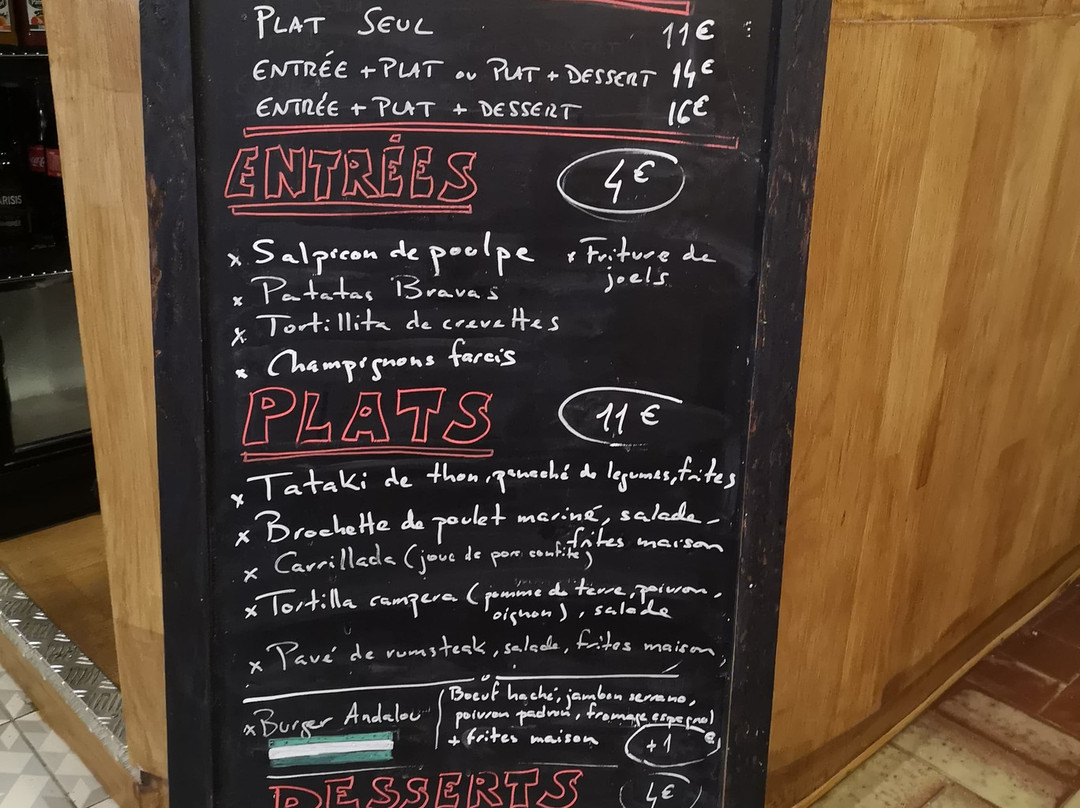 PLAT SEUL 11€
ENTRÉE + PLAT ou PLAT + DESSERT 14€
ENTRÉE + PLAT + DESSERT 16€
ENTRÉES 4€
x Salpicon de poulpe x Friture de
joels
x Patatas Bravas
x Tortillita de crevettes
x Champignons farcis
PLATS 11€
x Tataki de thon, panaché de legumes, frites
x Brochette de poulet mariné, salade,
frites maison
x Carrillada (joue de porc confite)
x Tortilla campera (pomme de terre, poivron,
oignon), salade
x Pavé de rumsteak, salade, frites maison,
x Burger Andalou
Boeuf haché, jambon serrano,
poivron padron, fromage espagnol
+ frites maison +1€
DESSERTS 4€